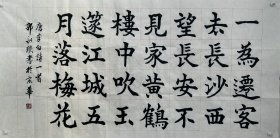 一為遷客
去長沙西
望長安不
見家黃鶴
樓中吹玉
篴江城五
月落梅花
唐李白詩一首
郭書於京華